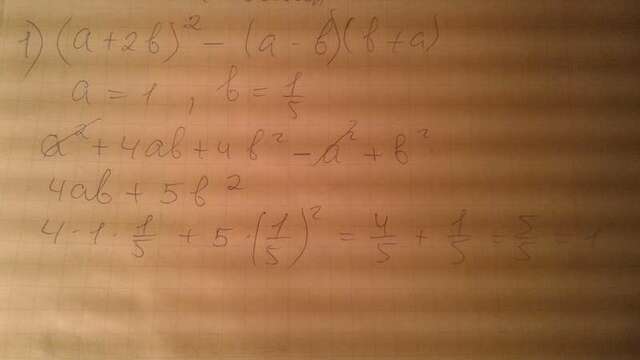 1) (a+2b)² - (a-b)(b+a)
a = 1, b = 1/5
a² + 4ab + 4b² - a² + b²
4ab + 5b²
4·1·1/5 + 5·(1/5)² = 4/5 + 1/5 = 5/5 = 1